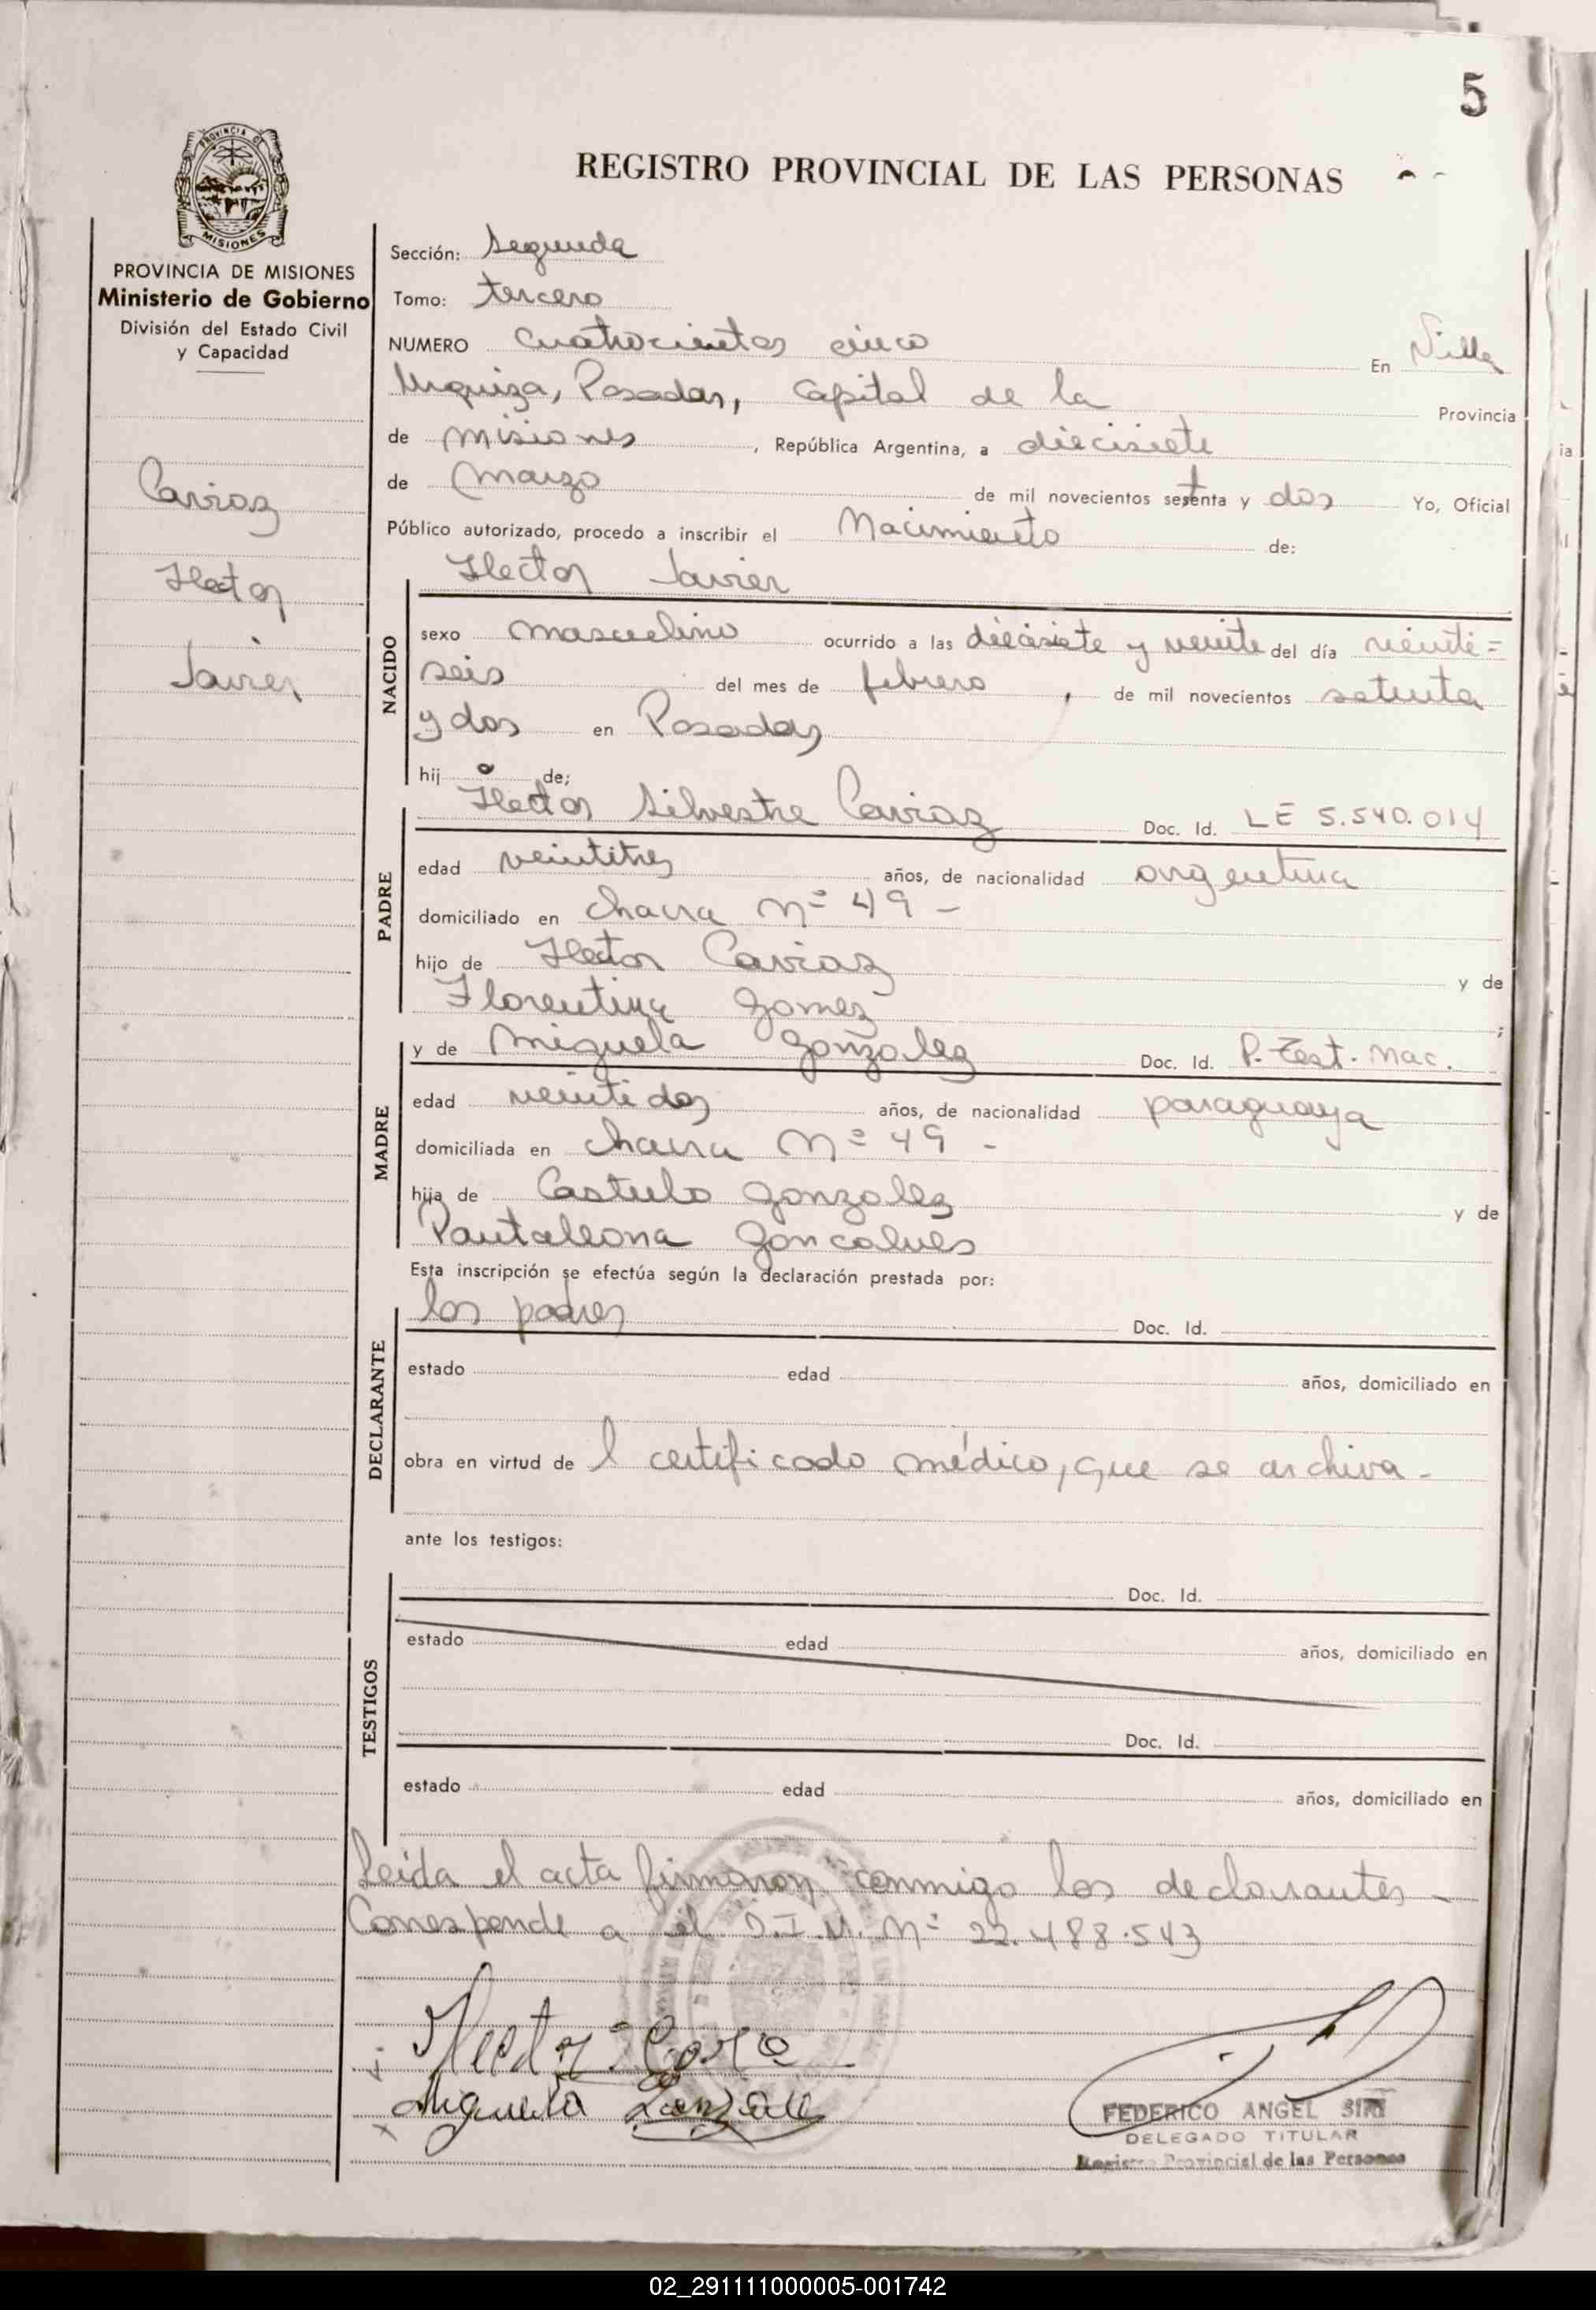 5
PROVINCIA DE
MISIONES
REGISTRO PROVINCIAL DE LAS PERSONAS
PROVINCIA DE MISIONES
Ministerio de Gobierno
División del Estado Civil
y Capacidad
Carioz
Hector
Javier
Sección: Segunda
Tomo: tercero
NUMERO cuatrocientos cinco En Villa
Urquiza, Posadas, Capital de la Provincia
de Misiones, República Argentina, a diecisiete
de Marzo de mil novecientos setenta y dos Yo, Oficial
Público autorizado, procedo a inscribir el Nacimiento de:
Hector Javier
NACIDO
sexo masculino ocurrido a las diecisiete y veinte del día veinti=
seis del mes de febrero, de mil novecientos setenta
y dos en Posadas
hij o de;
Hector Silvestre Carioz Doc. Id. LE 5.540.014
PADRE
edad veintitres años, de nacionalidad argentina
domiciliado en chacra Nº 49 -
hijo de Hector Carioz y de
Florentina Gomez ;
y de Miguela Gonzalez Doc. Id. P. Test. Nac.
MADRE
edad veintidos años, de nacionalidad paraguaya
domiciliada en chacra Nº 49 -
hija de Castulo Gonzalez y de
Pantaleona Goncalves
Esta inscripción se efectúa según la declaración prestada por:
los padres Doc. Id.
DECLARANTE
estado edad años, domiciliado en
obra en virtud de l certificado médico, que se archiva -
ante los testigos:
Doc. Id.
TESTIGOS
estado edad años, domiciliado en
Doc. Id.
estado edad años, domiciliado en
Leída el acta firmaron conmigo los declarantes -
Corresponde a el D.I.M. Nº 22.488.543
Hector
Miguela
FEDERICO ANGEL
DELEGADO TITULAR
Registro Provincial de las Personas
02_291111000005-001742